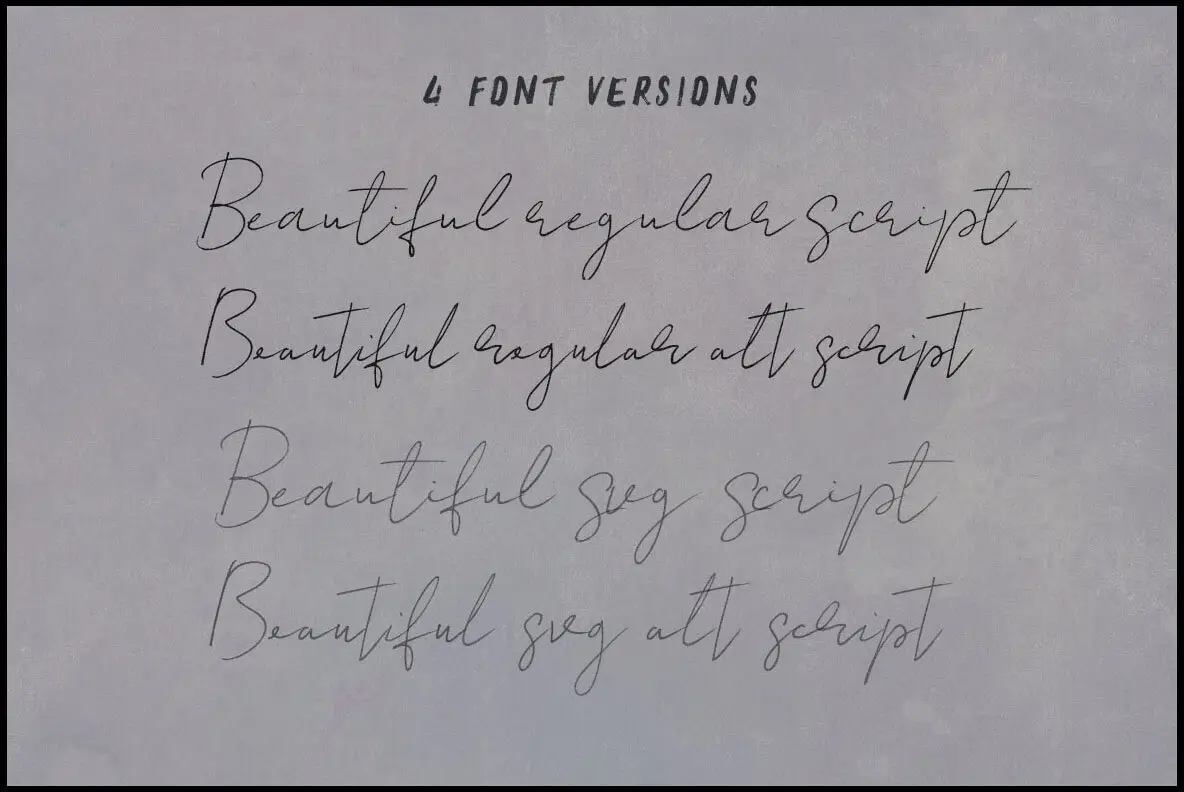 4 FONT VERSIONS
Beautiful regular script
Beautiful regular alt script
Beautiful svg script
Beautiful svg alt script